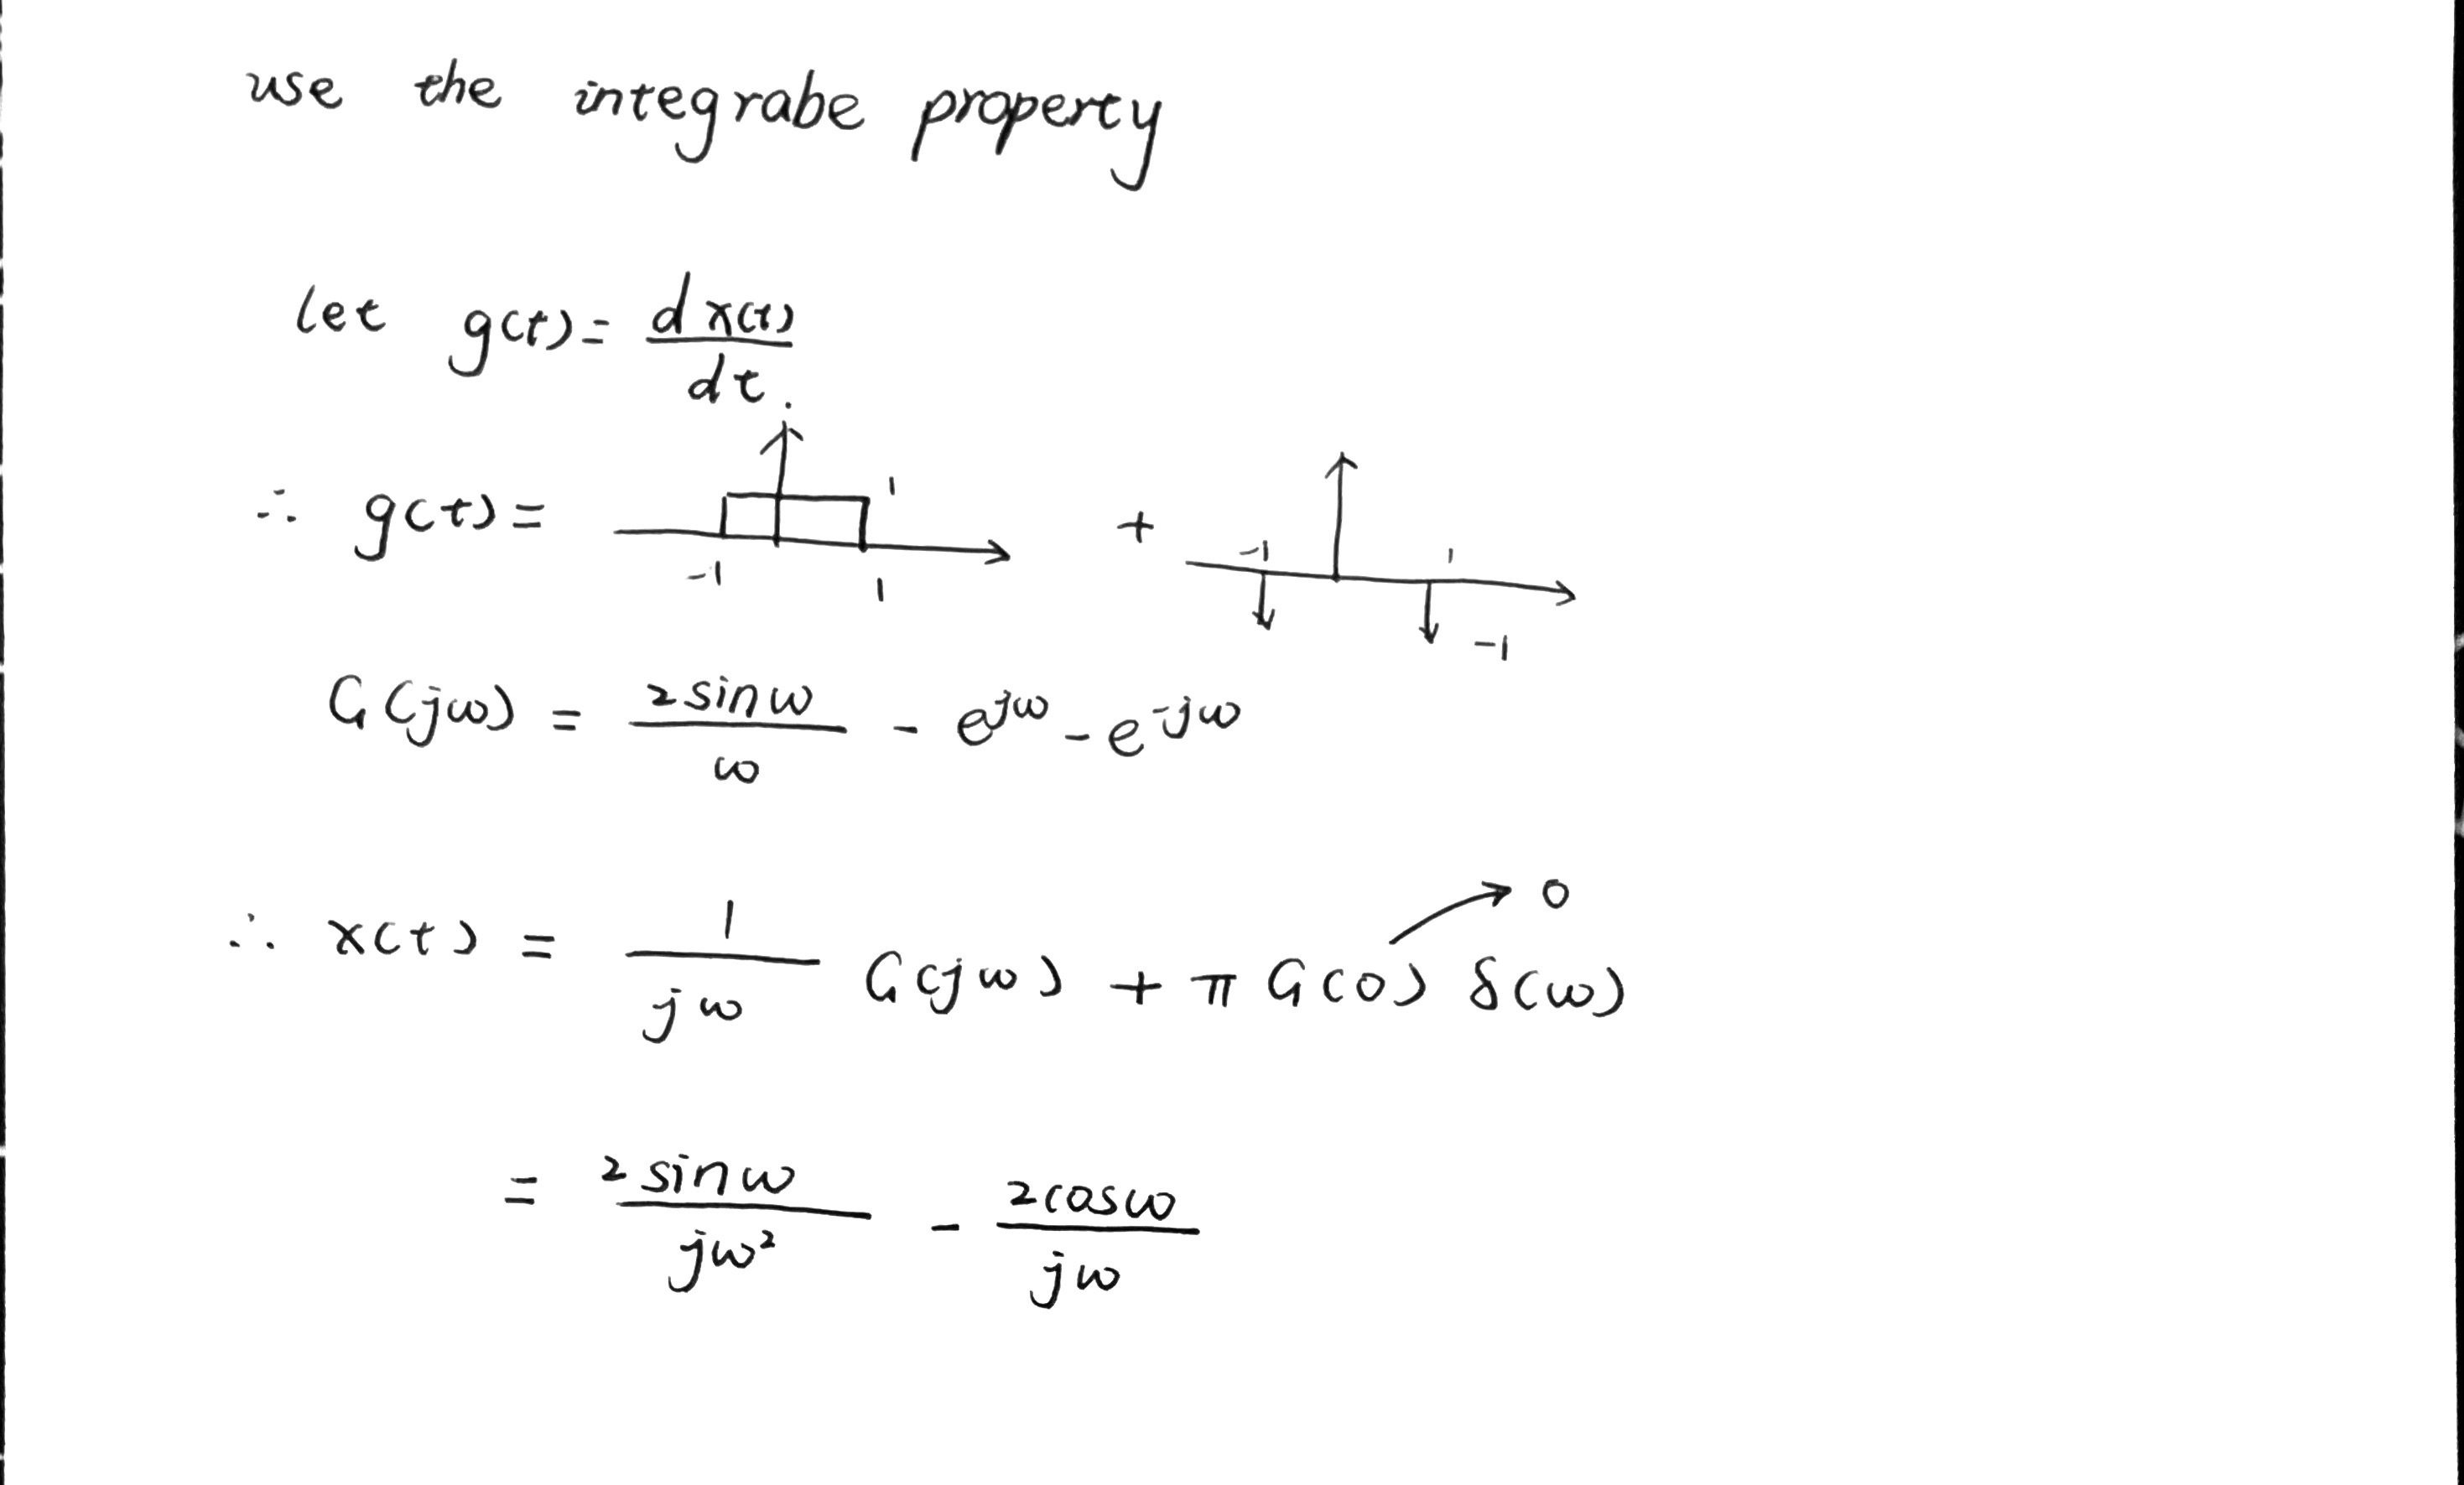 use the integrabe property
let g(t) = d x(t) / dt .
∴ g(t) = 1 -1 1 + -1 1 -1
G(jω) = 2 sin ω / ω - e^jω - e^-jω
∴ x(t) = 1 / jω G(jω) + π G(0) δ(ω) → 0
= 2 sin ω / jω² - 2 cos ω / jω